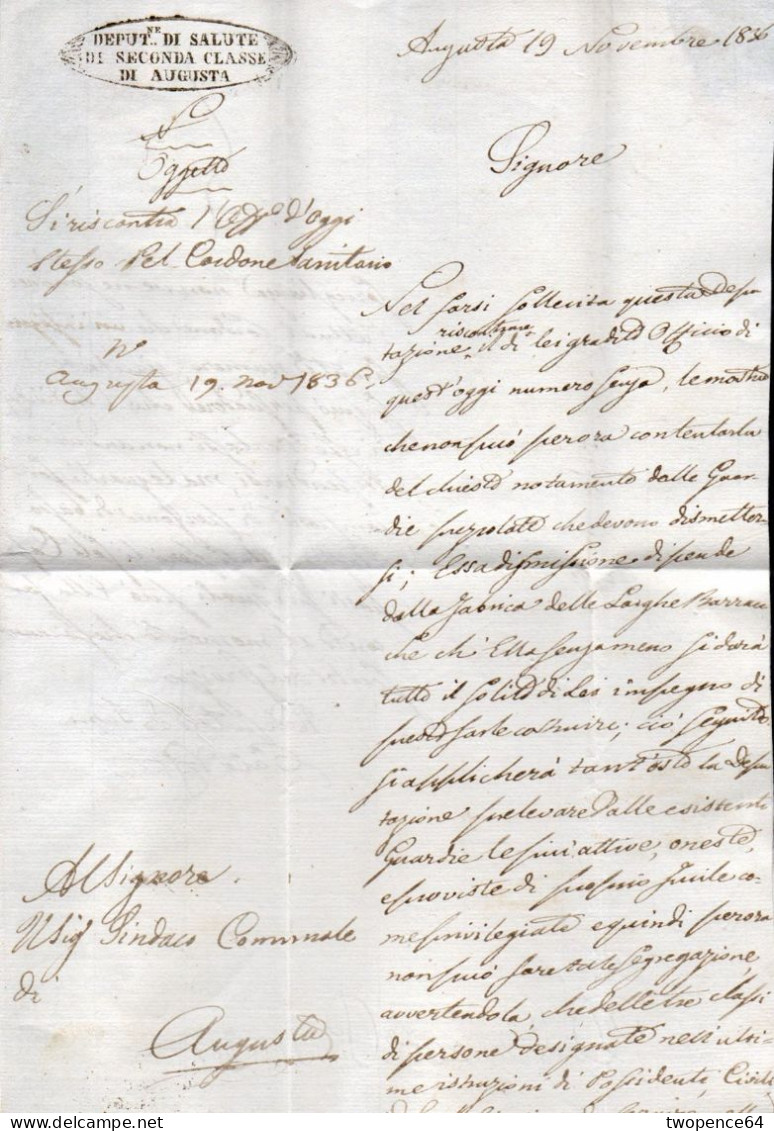 DEPUT.NE DI SALUTE
DI SECONDA CLASSE
DI AUGUSTA
Augusta 19 Novembre 1836
N
Oggetto
Signore
Si riscontra l' d'oggi
stesso pel Cordone Sanitario
N°
Augusta 19. nov 1836.
Nel farsi sollecita questa Depu
riscontrare
tazione, il di lei gradito Officio di
quest'oggi numero senza, le mostra
che non può per ora contentarla
del chiesto notamento dalle Guar
die che devono dismetter
si; Essa dismissione dipende
dalla fabrica delle Barrac
che ch'Ella senza meno si darà
tutto il solito di Lei impegno di
presto farle costruire; ciò seguito
si applicherà tantosto la Depu
tazione prelevare dalle esistenti
Guardie le più attive, oneste,
e proviste di proprio fucile co
me privilegiate e quindi per ora
non può fare tale segregazione,
avvertendola, che delle tre classi
di persone designate nell'ulti-
me istruzioni di Possidenti, Civili
Al Signore
Il Sig Sindaco Comunale
di
Augusta
twopence64